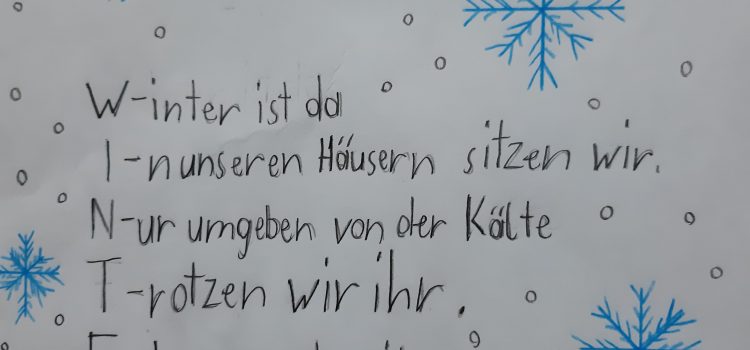 W-inter ist da
I-n unseren Häusern sitzen wir.
N-ur umgeben von der Kälte
T-rotzen wir ihr.